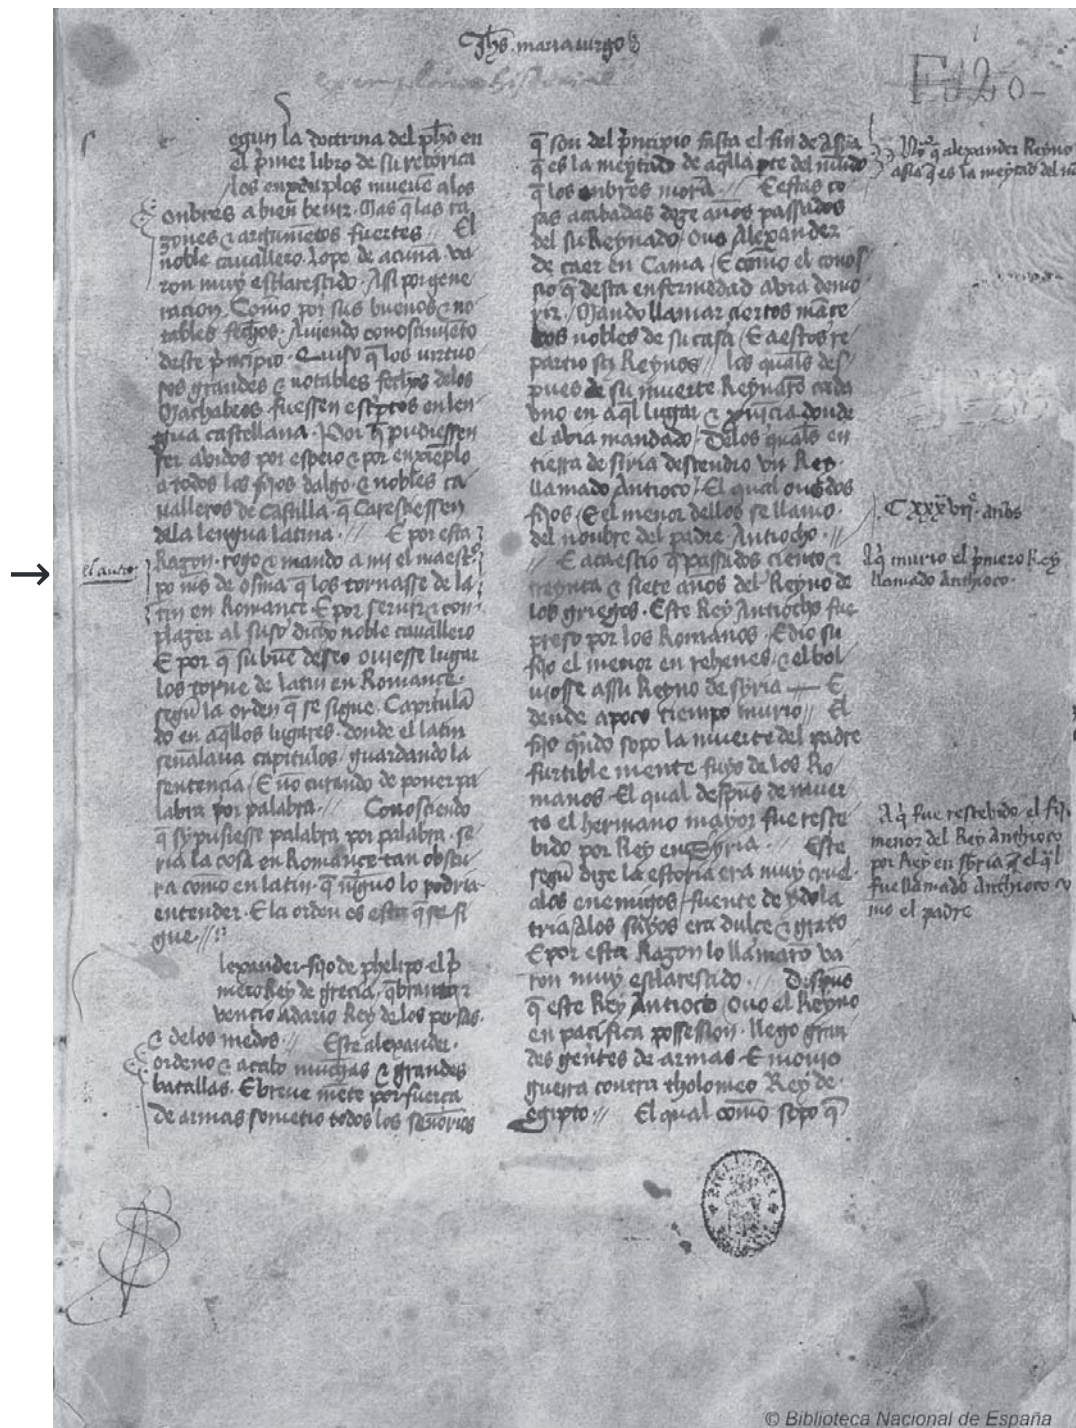 Jhs. maria uirgo
E 120
egun la doctrina del pho en
el pmer libro de su retorica
los enxenplos mueuē alos
onbres a bien beuir. Mas q̄ las ra
zones & argumētos fuertes // El
noble cauallero. lope de acuña va
ron muy esclarescido. Asi por gene
racion. Como por sus buenos & no
tables fechos. Auiendo conoscimiēto
deste pncipio. Quiso q̄ los virtuo
sos grandes & notables fechos delos
Machabeos fuessen escptos en len
gua castellana. Por q̄ pudiessen
ser avidos por espeio & por enxenplo
a todos los fijos dalgo. & nobles ca
ualleros de castilla. q̄ Caresciessen
dela lengua latina // E por esta
Razon. rogo & mando a mi el maestº
po ms de osma q̄ los tornasse de la
tin en Romance E por seruir & con
plazer al suso dicho noble cauallero
E por q̄ su buē deseo ouiesse lugar
los torne de latin en Romance.
segū la orden q̄ se sigue. Capitulā
do en aq̄llos lugares. donde el latin
señalaua capitulos / guardando la
sentencia / E no curando de poner pa
labra por palabra. // Conosciendo
q̄ sy pusiesse palabra por palabra. se
ria la cosa en Romance tan obscu
ra como en latin. q̄ nīguo lo podria
entender. E la orden es esta q̄ se si
gue. //
lexander fijo de phelipo el p
mero Rey de grecia. q̄branto &
vencio adario Rey de los persas.
& delos medos. // Este alexander.
ordeno & acabo muchas & grandes
batallas. E breue mēte por fuerça
de armas sometio todos los señorios
q̄ son del pncipio fasta el fin de Asia
q̄ es la meytad de aq̄lla pte del mūdo
q̄ los onbres morā. // E estas co
sas acabadas doze años passados
del su Reynado / Ouo Alexander
de caer en Cama / E como el conos
cio q̄ desta enfermedad avia de mo
rir / Mando llamar ciertos māce
bos nobles de su casa / E a estos re
partio sus Reynos // los quals des
pues de su muerte Reynarō cada
vno en aql lugar & puīcia donde
el avia mandado / Delos quals en
tierra de siria descendio vn Rey.
llamado Antioco / El qual ouo dos
fijos / E el menor dellos se llamo.
del nonbre del padre Antiocho. //
E acaescio q̄ passados ciento &
treynta & siete años del Reyno de
los griegos. Este Rey Antiocho fue
preso por los Romanos. E dio su
fijo el menor en rehenes. & el bol
uiosse assu Reyno de syria — E
dende apoco tiempo murio // El
fijo qndo sopo la muerte del padre
furtible mente fuyo de los Ro
manos. El qual despūs de muer
to el hermano mayor fue resce
bido por Rey en Syria. // Este
segū dize la estoria era muy cruel.
alos enemigos / fuente de ydola
tria / Alos suyos era dulce & grato
E por esta Razon lo llamarō va
ron muy esclarescido. // Despūs
q̄ este Rey Antioco / Ouo el Reyno
en pacifica possession. llego gran
des gentes de armas. E mouio
guerra contra tholomeo Rey de
egipto. // El qual como sopo q̄
q̄ alexander Reyno
asia q̄ es la meytad del
CXXXVII. años
Aq̄ murio el pmero Rey
llamado Anthioco.
Aq̄ fue rescebido el fi
menor del Rey Anthioco
por Rey en syria & el ql
fue llamado Anthioco
mo el padre
el autor
→
© Biblioteca Nacional de España